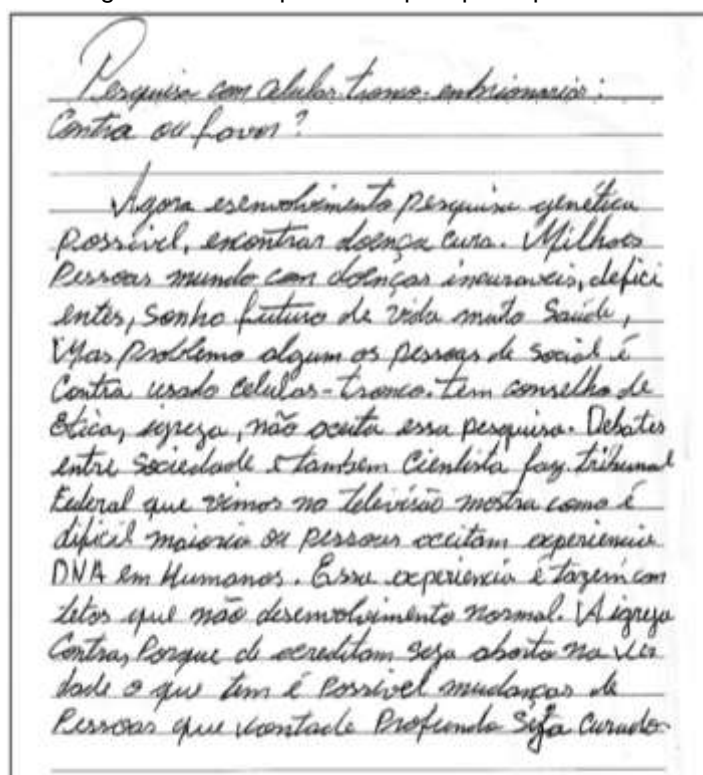 Pesquisa com celulas-tronco-embrionarias:
Contra ou favor?
Agora esenvolvimento pesquisa genética
possível, encontrar doença cura. Milhoes
Pessoas mundo com doenças incuraveis, defici
entes, Sonho futuro de vida muito Saúde,
Mas Problema algum as pessoas de social é
Contra usado celulas-tronco. tem conselho de
Ética, igreja, não aceita essa pesquisa. Debates
entre Sociedade e tambem Cientista faz. tribunal
Federal que vimos no televisão mostra como é
dificil maioria ou pessoas aceitam experiencia
DNA em Humanos. Essa experiencia é fazem com
fetos que não desenvolvimento normal. A igreja
Contra, Porque de acreditam seja aborto na ver
dade o que tem é Possível mudanças de
Pessoas que vontade Profundo seja curado